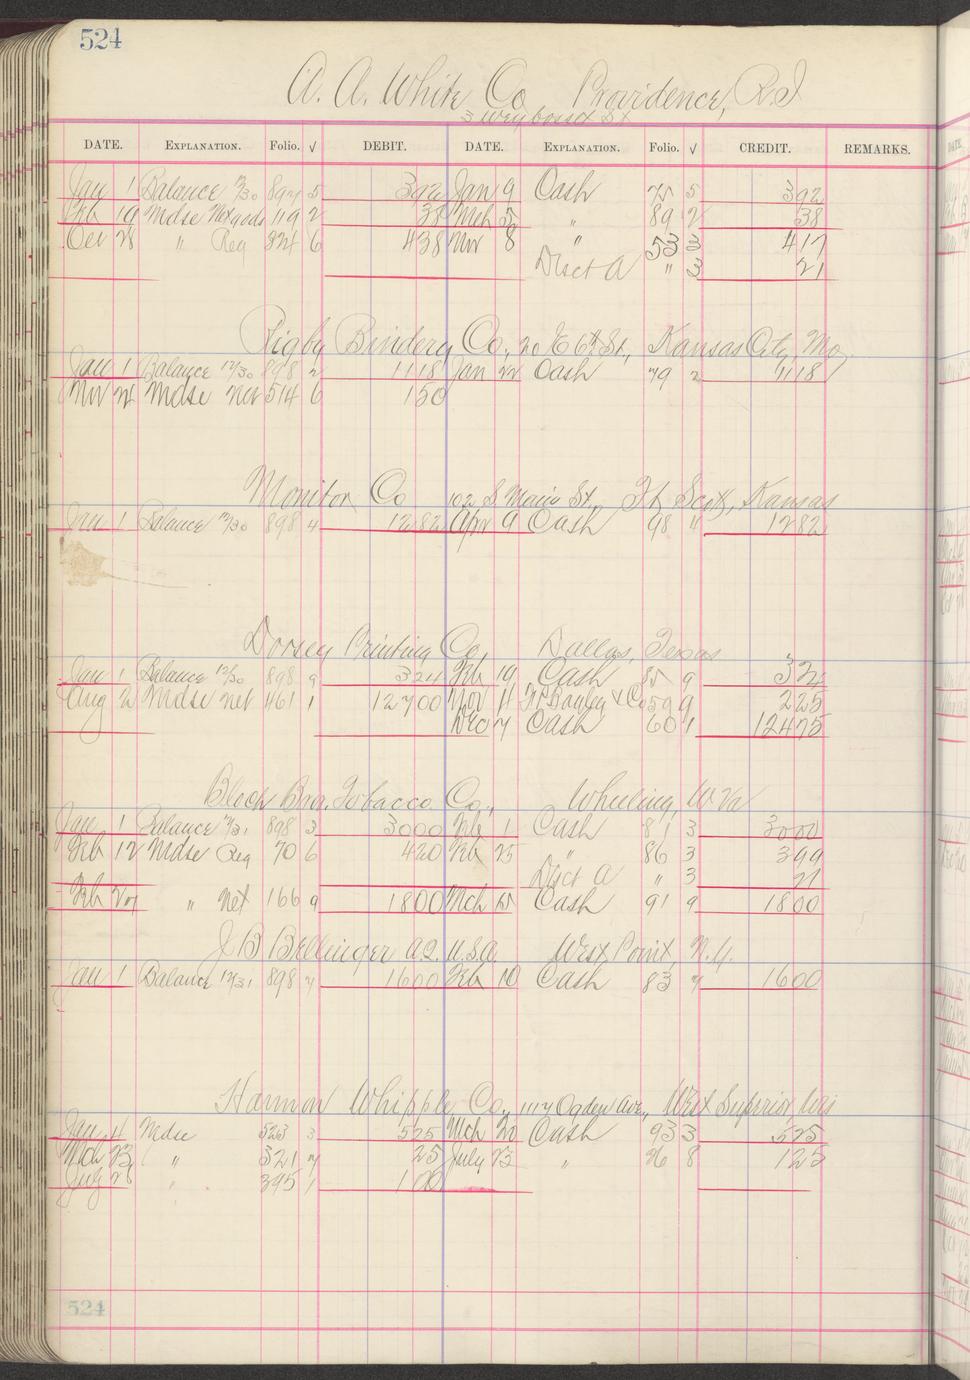 524
A. A. White Co Providence, R.I
3 Weybosset St
DATE. EXPLANATION. Folio. √ DEBIT. DATE. EXPLANATION. Folio. √ CREDIT. REMARKS.
Jan 1 Balance 12/30 894 5 392 Jan 9 Cash 75 5 392
Feb 19 Mdse Net gods 119 2 38 Mch 5 " 89 2 38
Oct 28 " Reg 824 6 438 Nov 8 " 53 3 417
Disct A " 3 21
Rigby Bindery Co., 20 E 6th St., Kansas City, Mo,
Jan 1 Balance 12/30 898 2 1118 Jan 22 Cash 79 2 1118
Nov 21 Mdse Net 514 6 150
Monitor Co 102 S Main St., Ft Scott, Kansas
Jan 1 Balance 12/30 898 4 1282 Apr 9 Cash 98 " 1282
Dorsey Printing Co., Dallas, Texas
Jan 1 Balance 12/30 898 9 324 Feb 19 Cash 85 9 324
Aug 2 Mdse net 461 1 12700 Nov 4 & Co 59 9 225
Dec 7 Cash 60 1 12475
Bloch Bro. Tobacco Co., Wheeling, W. Va
Jan 1 Balance 12/31 898 3 3000 Feb 1 Cash 81 3 3000
Feb 12 Mdse Reg 70 6 420 Feb 25 " 86 3 399
Disct A " 3 21
Feb 27 " Net 166 9 1800 Mch 15 Cash 91 9 1800
J B Bellinger A.Q. U.S.A. West Point, N.Y.
Jan 1 Balance 12/31 898 7 1600 Feb 10 Cash 83 7 1600
Harmon Whipple Co., 1117 Ogden Ave., West Superior, Wis
Jan 4 Mdse 523 3 525 Mch 20 Cash 93 3 525
Mch 23 " 321 7 25 July 23 " 26 8 125
July 28 " 395 1 100
524